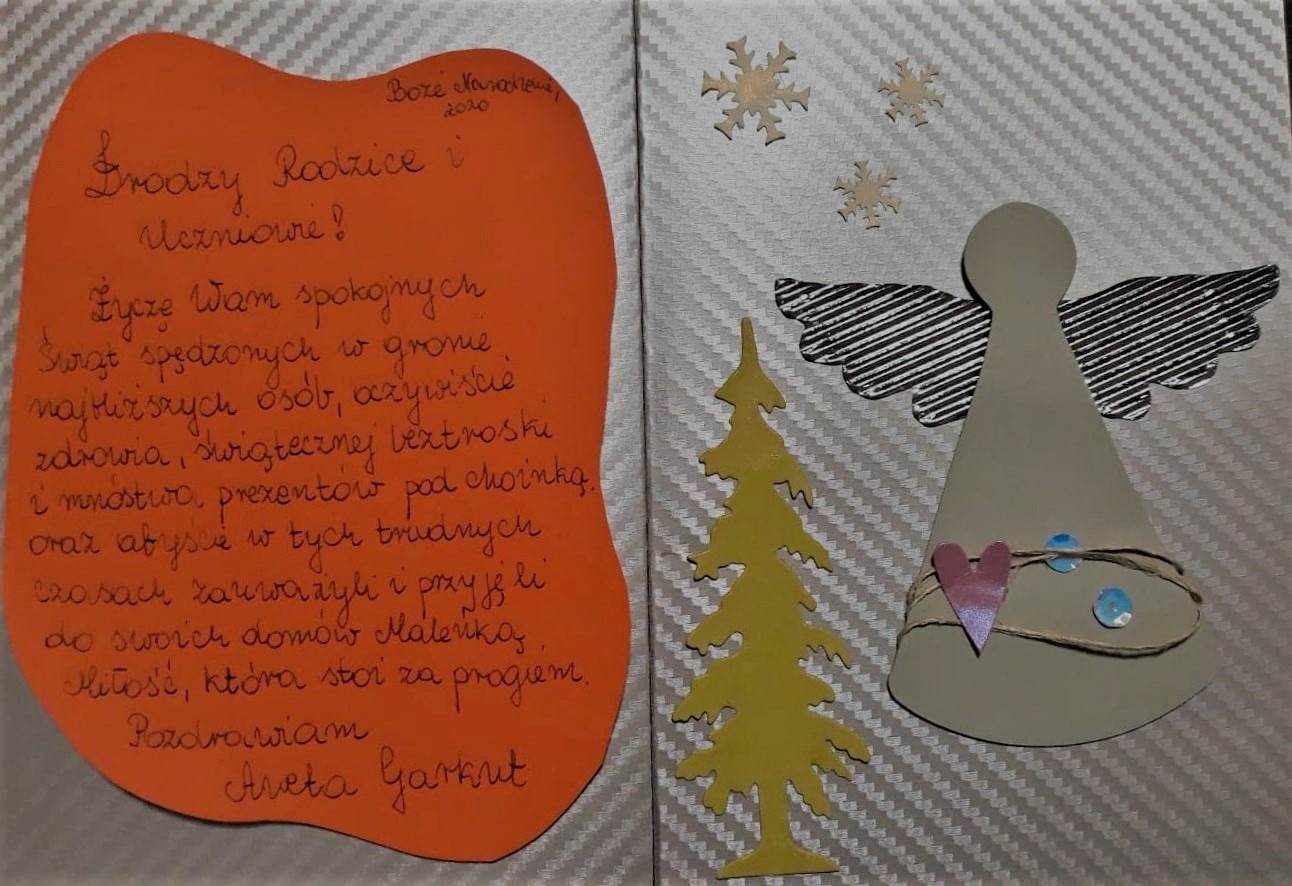 Boże Narodzenie,
2020
Drodzy Rodzice i
Uczniowie!
Życzę Wam spokojnych
Świąt spędzonych w gronie
najbliższych osób, oczywiście
zdrowia, świątecznej beztroski
i mnóstwa prezentów pod choinką.
oraz abyście w tych trudnych
czasach zauważyli i przyjęli
do swoich domów Maleńką
Miłość, która stoi za progiem.
Pozdrawiam
Aneta Garkut